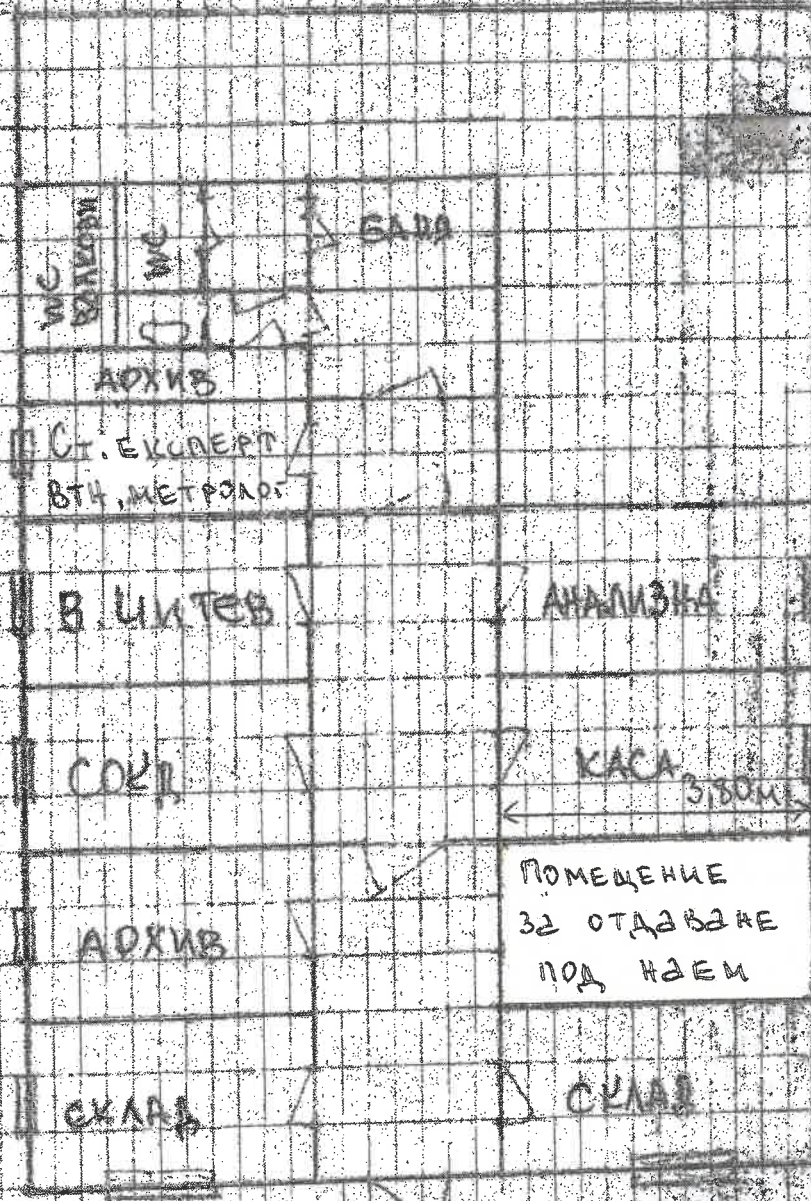 WC
WC
БАНЯ
АРХИВ
Ст. ЕКСПЕРТ
ВТЧ, МЕТРОЛОГ
В. ЧИТЕВ
АНАЛИЗНА
СОКД
КАСА
3,80м
ПОМЕЩЕНИЕ
За ОТДаВаНЕ
ПОД НаЕМ
АРХИВ
СКЛАД
СКЛАД